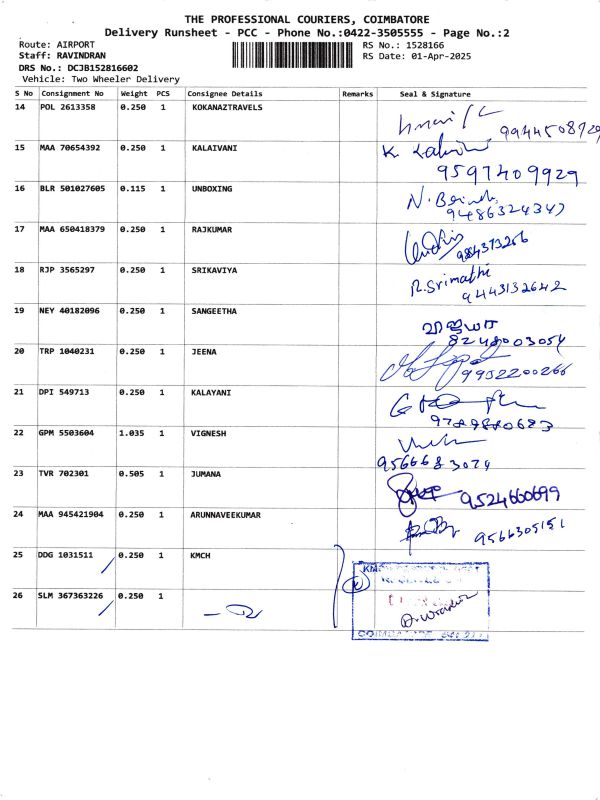 THE PROFESSIONAL COURIERS, COIMBATORE
Delivery Runsheet - PCC - Phone No.:0422-3505555 - Page No.:2
Route: AIRPORT
RS No.: 1528166
Staff: RAVINDRAN
RS Date: 01-Apr-2025
DRS No.: DCJB152816602
Vehicle: Two Wheeler Delivery
S No Consignment No Weight PCS Consignee Details Remarks Seal & Signature
14 POL 2613358 0.250 1 KOKANAZTRAVELS
15 MAA 70654392 0.250 1 KALAIVANI K.
9597409929
16 BLR 501027605 0.115 1 UNBOXING N.
9486324347
17 MAA 650418379 0.250 1 RAJKUMAR
18 RJP 3565297 0.250 1 SRIKAVIYA R.Srimathi
9443132642
19 NEY 40182096 0.250 1 SANGEETHA
8248003054
20 TRP 1040231 0.250 1 JEENA
9952200266
21 DPI 549713 0.250 1 KALAYANI
9789880683
22 GPM 5503604 1.035 1 VIGNESH
9566683074
23 TVR 702301 0.505 1 JUMANA 9524660699
24 MAA 945421904 0.250 1 ARUNNAVEEKUMAR 9566305151
25 DDG 1031511 0.250 1 KMCH
26 SLM 367363226 0.250 1
COIMBATORE